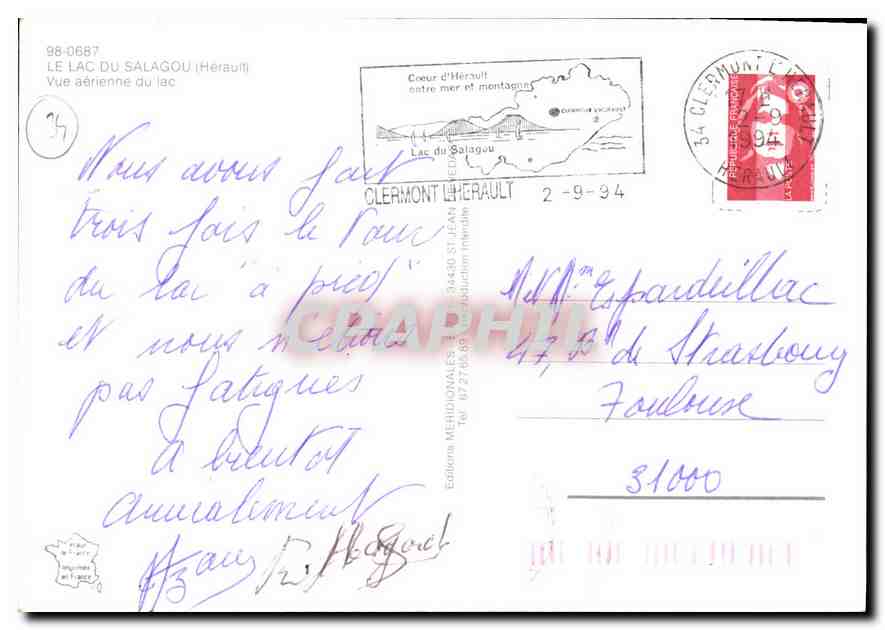 98-0687
LE LAC DU SALAGOU (Hérault)
Vue aérienne du lac
34
Coeur d'Hérault
entre mer et montagne
CLERMONT L'HERAULT
Lac du Salagou
CLERMONT L'HERAULT 2-9-94
34 CLERMONT L'HERAULT
2-9
1994
HERAULT
REPUBLIQUE FRANÇAISE
LA POSTE
Nous avons fait
trois fois le tour
du lac "à pied"
et nous n'étions
pas fatigués
A bientôt
Amicalement
Editions MERIDIONALES 34430 ST JEAN DE VEDAS
Tél. 67 27 65 89 reproduction interdite
M et Mme Espardeillac
47, Bd de Strasbourg
Toulouse
31000
CPAPHIL
Imprimée
en France